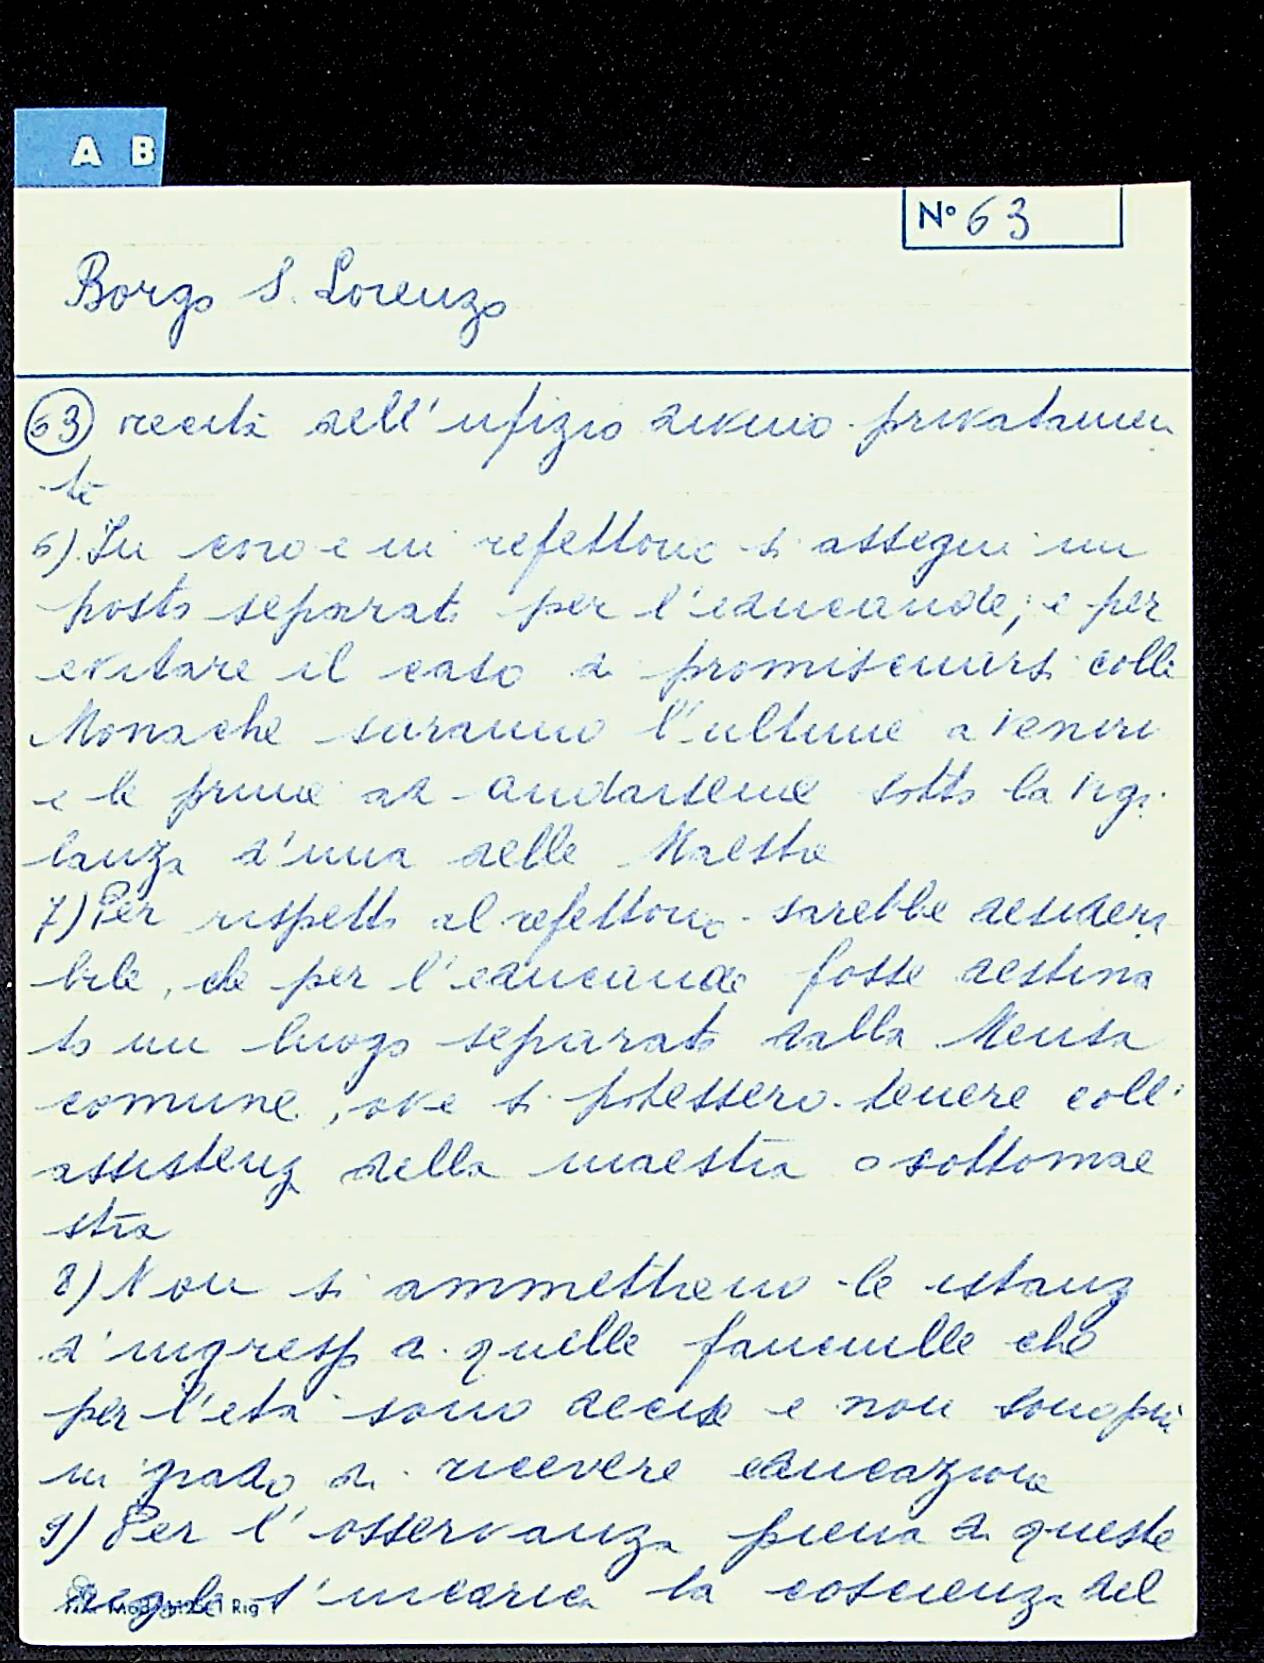 A B
N° 63
Borgo S. Lorenzo
63 recita dell'ufizio divino privatamen
te
6) In coro e in refettorio si assegni un
posto separato per l'educande; e per
evitare il caso di promiscuarsi colle
Monache saranno l'ultime a venire
e le prime ad andarsene sotto la vigi
lanza d'una delle Maestre
7) Per rispetto al refettorio sarebbe desidera
bile, che per l'educande fosse destina
to un luogo separato dalla Mensa
comune, ove si potessero tenere coll'
assistenza della maestra o sottomae
stra
8) Non si ammettano le istanze
d'ingresso di quelle fanciulle che
per l'età sono decise e non sono più
in grado di ricevere educazione
9) Per l'osservanza piena di queste
regole s'incarica la coscienza del